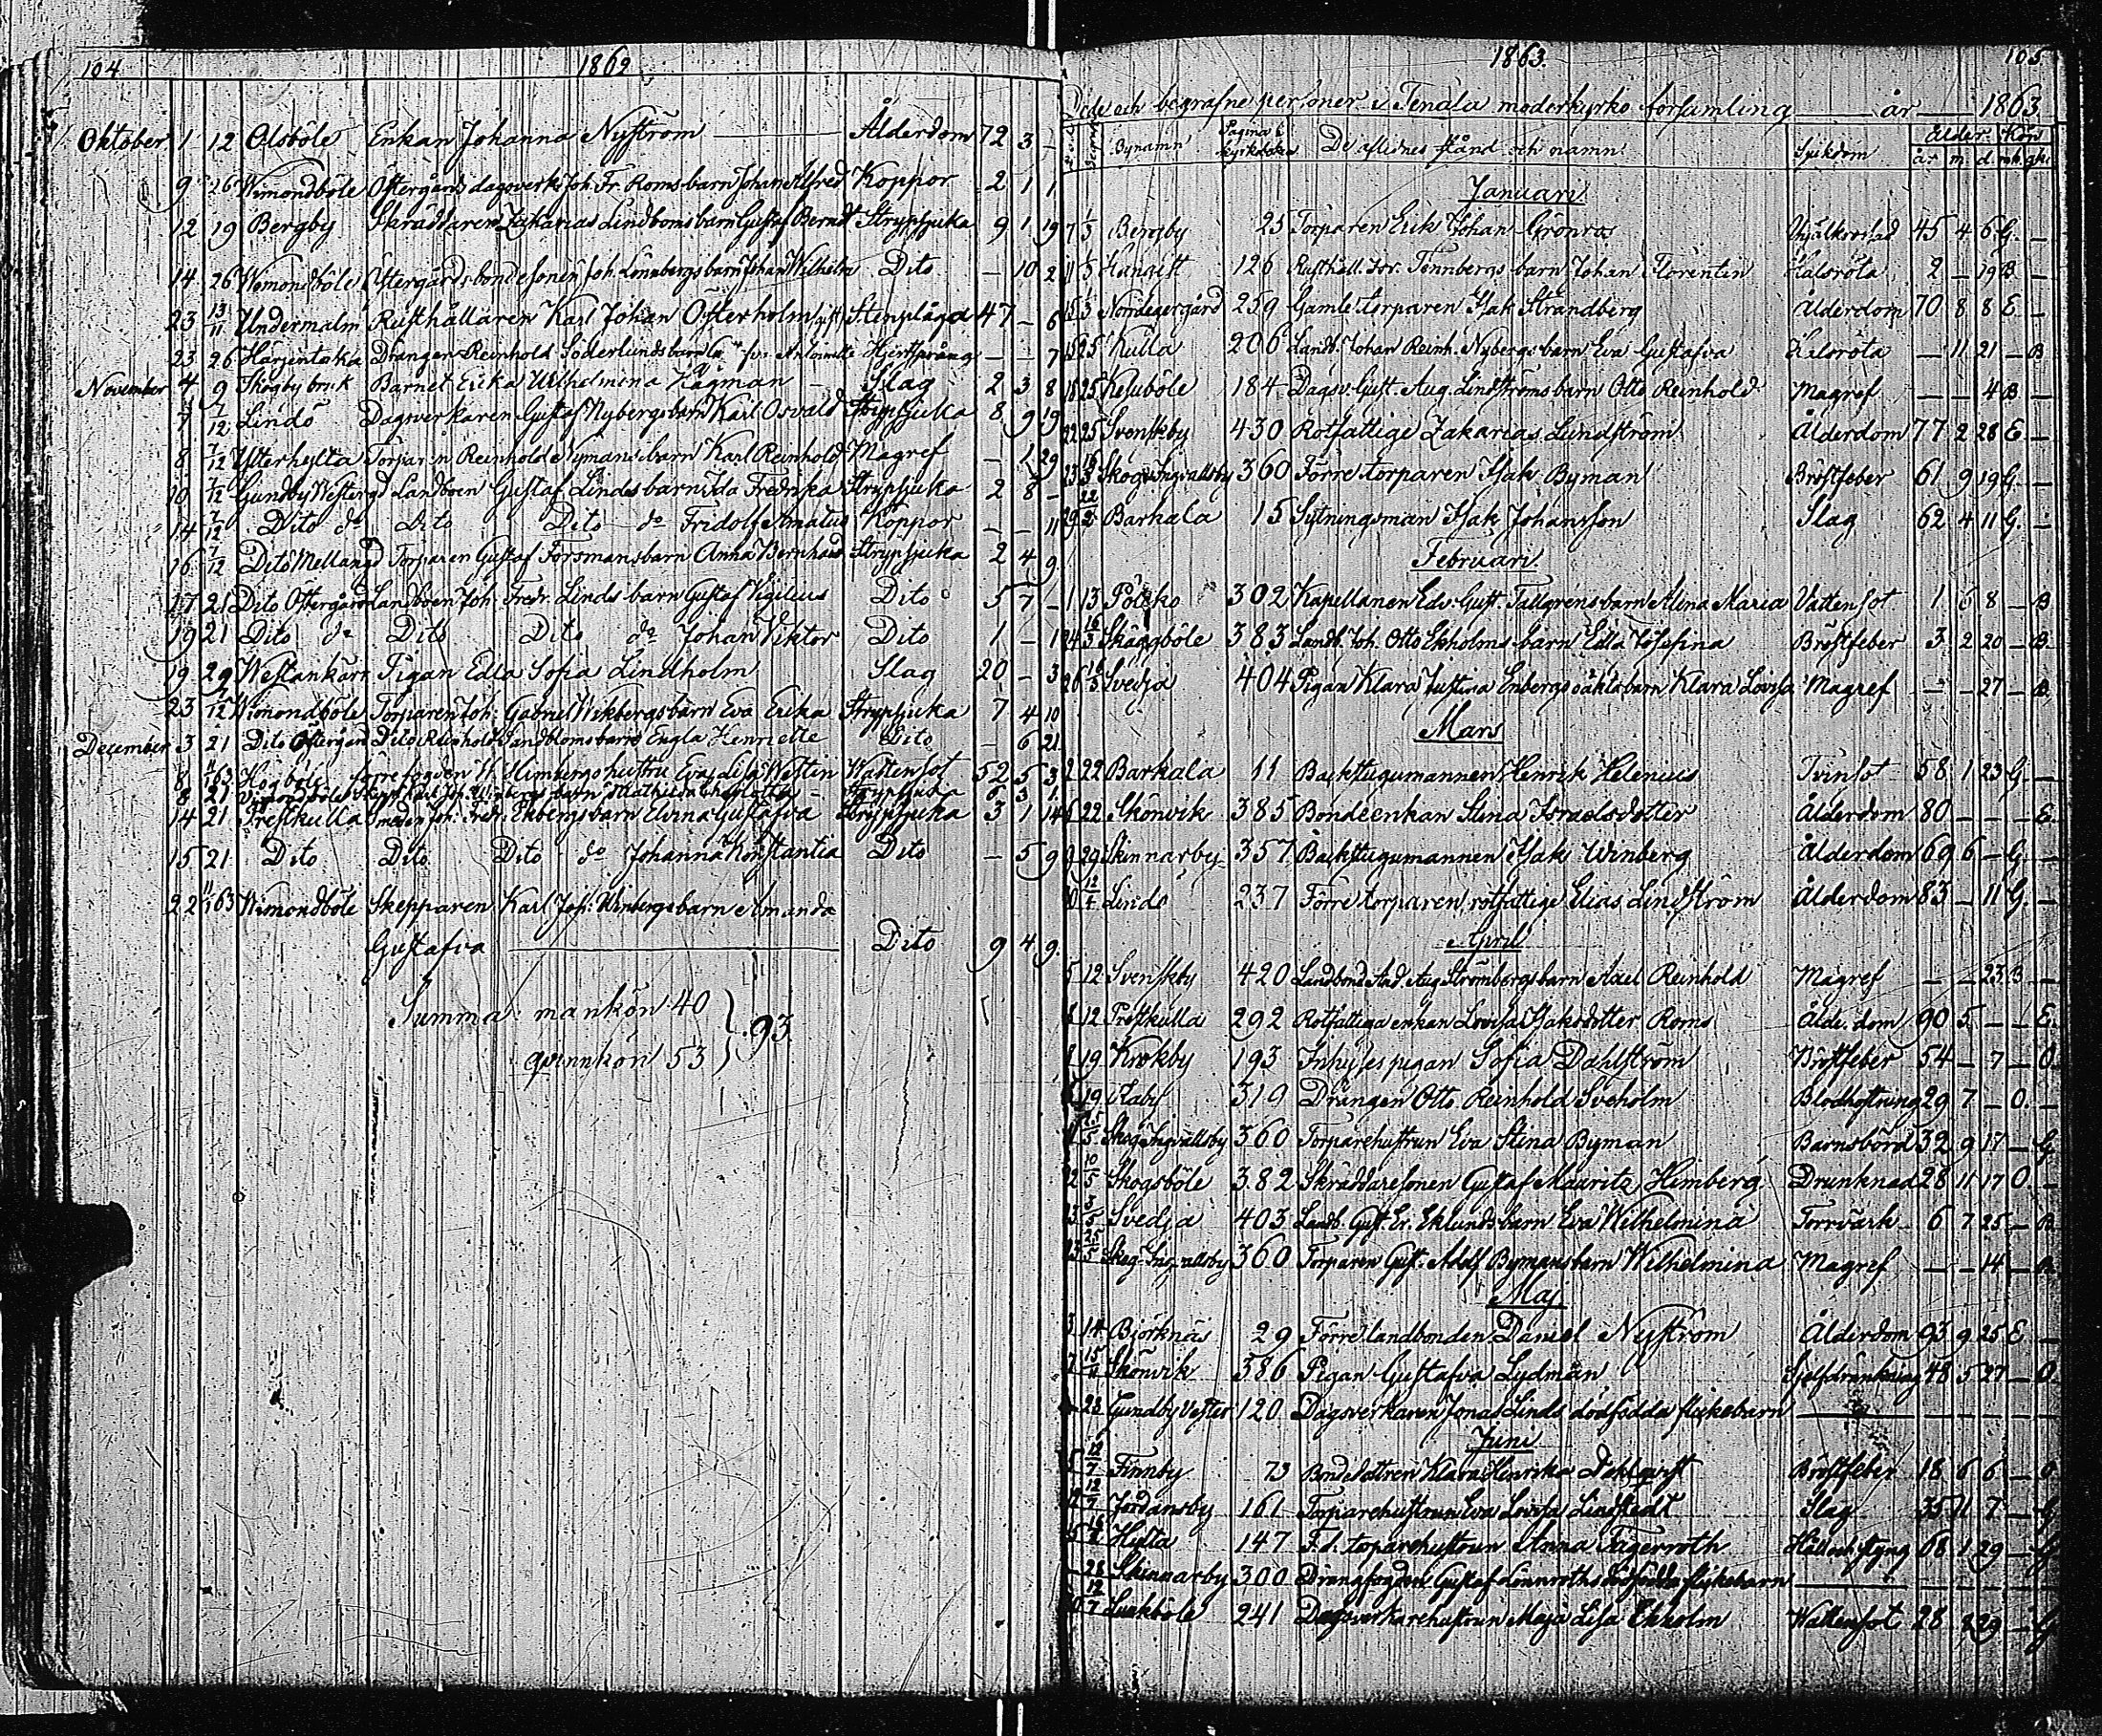 104 1862
Oktober 1 12 Olsböle Enkan Johanna Nyström Ålderdom 72 3 -
9 26 Wimondböle Östergårds dagsverk. Joh. Fr. Roms barn Johan Alfred Koppor 2 1 1
12 19 Bergby Skräddaren Zakarias Lindboms barn Gustaf Berndt Strypsjuka 9 1 19
14 26 Wimondböle Östergårds bondesonen Joh. Lönnbergs barn Johan Wilhelm Dito - 10 2
23 13/11 Undermalm Rusthållaren Karl Johan Österholm Stenplåga 47 - 6
23 26 Härjentaka Drängen Reinhold Söderlunds barn Antoinette Hjertsprång - - 7
November 4 9 Skogby bruk Barnet Erika Wilhelmina Hägman Slag 2 3 8
7 7/12 Lindö Dagsverkaren Gustaf Nybergs barn Karl Osvald Strypsjuka 8 9 19
8 7/12 Ytterhylta Torparen Reinhold Nymans barn Karl Reinhold Magref - 1 29
10 7/12 Gundby Westergd Landboen Gustaf Linds barn Ida Fredrika Strypsjuka 2 8 -
14 7/12 Dito do Dito Dito do Fridolf Amatus Koppor - - 11
16 7/12 Dito Mellangd Torparen Gustaf Forsmans barn Anna Bernhard. Strypsjuka 2 4 9
17 21 Dito Östergård Landboen Joh. Fredr. Linds barn Gustaf Vigilius Dito 5 7 -
19 21 Dito do Dito Dito do Johan Viktor Dito 1 - 1
19 29 Westankärr Pigan Edla Sofia Lindholm Slag 20 - 3
23 7/12 Wimondböle Torparen Joh. Gabriel Wikbergs barn Eva Erika Strypsjuka 7 4 10
December 3 21 Dito Östergård Dito Reinhold Sandbloms barn Engla Henriette Dito - 6 21
8 11/1 63 Högböle Förre fogden H. Himbergs hustru Eva Lisa Westin Wattensot 52 5 3
8 21 Wimondböle Skepp. Karl Joh. Winbergs barn Mathilda Charlotta Strypsjuka 6 3 1
14 21 Prestkulla Smeden Joh. Fredr. Ekbergs barn Elvina Gustafva Strypsjuka 3 1 14
15 21 Dito Dito Dito do Johanna Konstantia Dito - 5 9
22 11/1 63 Wimondböle Skepparen Karl Joh. Winbergs barn Amanda
Gustafva Dito 9 4 9
Summa: mankön 40 } 93.
qvinnkön 53
1863. 105
Döde och begrafne personer i Tenala moderkyrko församling år 1863
Bynamn Pagina i kyrkboken De aflidnes stånd och namn Sjukdom Ålder. Kön
år m. d. mk. qk.
Januari
7 1/3 Bengby 25 Torparen Erik Johan Grönros 45 4 6 G. -
11 Hangist 126 Rusthåll. Tennbergs barn Johan Florentin Halsröta 2 - 19 B -
15 Nordegergård 259 Gamle torparen Isak Strandberg Ålderdom 70 8 8 E -
15 25 Kulla 206 Landb. Johan Reinh. Nybergs barn Eva Gustafva Halsröta - 11 21 - B
18 25 Kesuböle 184 Dagsv. Gust. Aug. Lindströms barn Otto Reinhold Magref - - 4 B -
22 25 Svenskby 430 Rotfattige Zakarias Lundström Ålderdom 77 2 28 E -
23 Skog-Ingvallsby 360 Förre torparen Isak Byman Bröstfeber 61 9 19 G. -
29 22/2 Barkala 15 Sytningsman Isak Johansson Slag 62 4 11 G. -
Februari
1 13 302 Kapellanen Edv. Gust. Tallgrens barn Alma Maria Vattensot 1 5 8 - B
24 16/3 Skäggböle 383 Landb. Joh. Otto Ekholms barn Edla Josefina Bröstfeber 3 2 20 - B.
26 16/3 Svedja 404 Pigan Klara Justina Enbergs oäkta barn Klara Lovisa Magref - - 27 - B
Mars
2 22 Barkala 11 Backstugumannen Henrik Helenius Tvinsot 58 1 23 G. -
6 22 Skönvik 385 Bondeenkan Stina Israelsdotter Ålderdom 80 - - - E.
9 29 Skinnarby 357 Backstugumannen Isak Winberg Ålderdom 69 6 - G. -
12/4 Lindö 237 Förre torparen, rotfattige Elias Lindström Ålderdom 83 - 11 G. -
April
5 12 Svenskby 420 Landbond. Aug. Strömbergs barn Axel Reinhold Magref - - 23 B -
12 Prestkulla 292 Rotfattiga enkan Lovisa Isaksdotter Roms Ålderdom 90 5 - - E.
19 Krokby 193 Inhyses pigan Sofia Dahlström Bröstfeber 54 - 7 - O.
19 319 Drängen Otto Reinhold Sveholm Blodhostning 29 7 - O. -
Skog-Ingvallsby 360 Torparehustrun Eva Stina Byman Barnsbörd 32 9 17 - G
10/5 Skogsböle 382 Skräddaresonen Gustaf Mauritz Himberg Drunknad 28 11 17 O -
3/5 Svedja 403 Landb. Gust. Er. Eklunds barn Eva Wilhelmina Torrvärk 6 7 25 - B
25/5 Skog-Ingvallsby 360 Torparen Gust. Adolf Bymans barn Wilhelmina Magref - - 14 - B
Maj
3 14 Björknäs 29 Förre landbonden Daniel Nyström Ålderdom 93 9 25 E -
7 15 Skönvik 386 Pigan Gustafva Lydman Sjelfdränkning 48 5 27 - O
- 23 Gundby Vester 120 Dagsverkaren Jonas Linds dödfödda flickebarn - - - -
Juni
12/7 Finnby 73 Bondedottren Klara Henrika Dahlqvist Bröstfeber 18 6 6 - O
12/7 Jordansby 161 Torparehustrun Eva Lovisa Lindstedt Slag 35 11 7 - G
Hylta 147 F.d. torparehustrun Anna Fagerroth Håll och styng 68 1 29 - G
- 28 Skinnarby 300 Drängfogden Gustaf Lönnroths dödfödda flickebarn - - - -
12/7 Luskböle 241 Dagsverkarehustrun Maja Lisa Ekholm Wattensot 28 29 - G